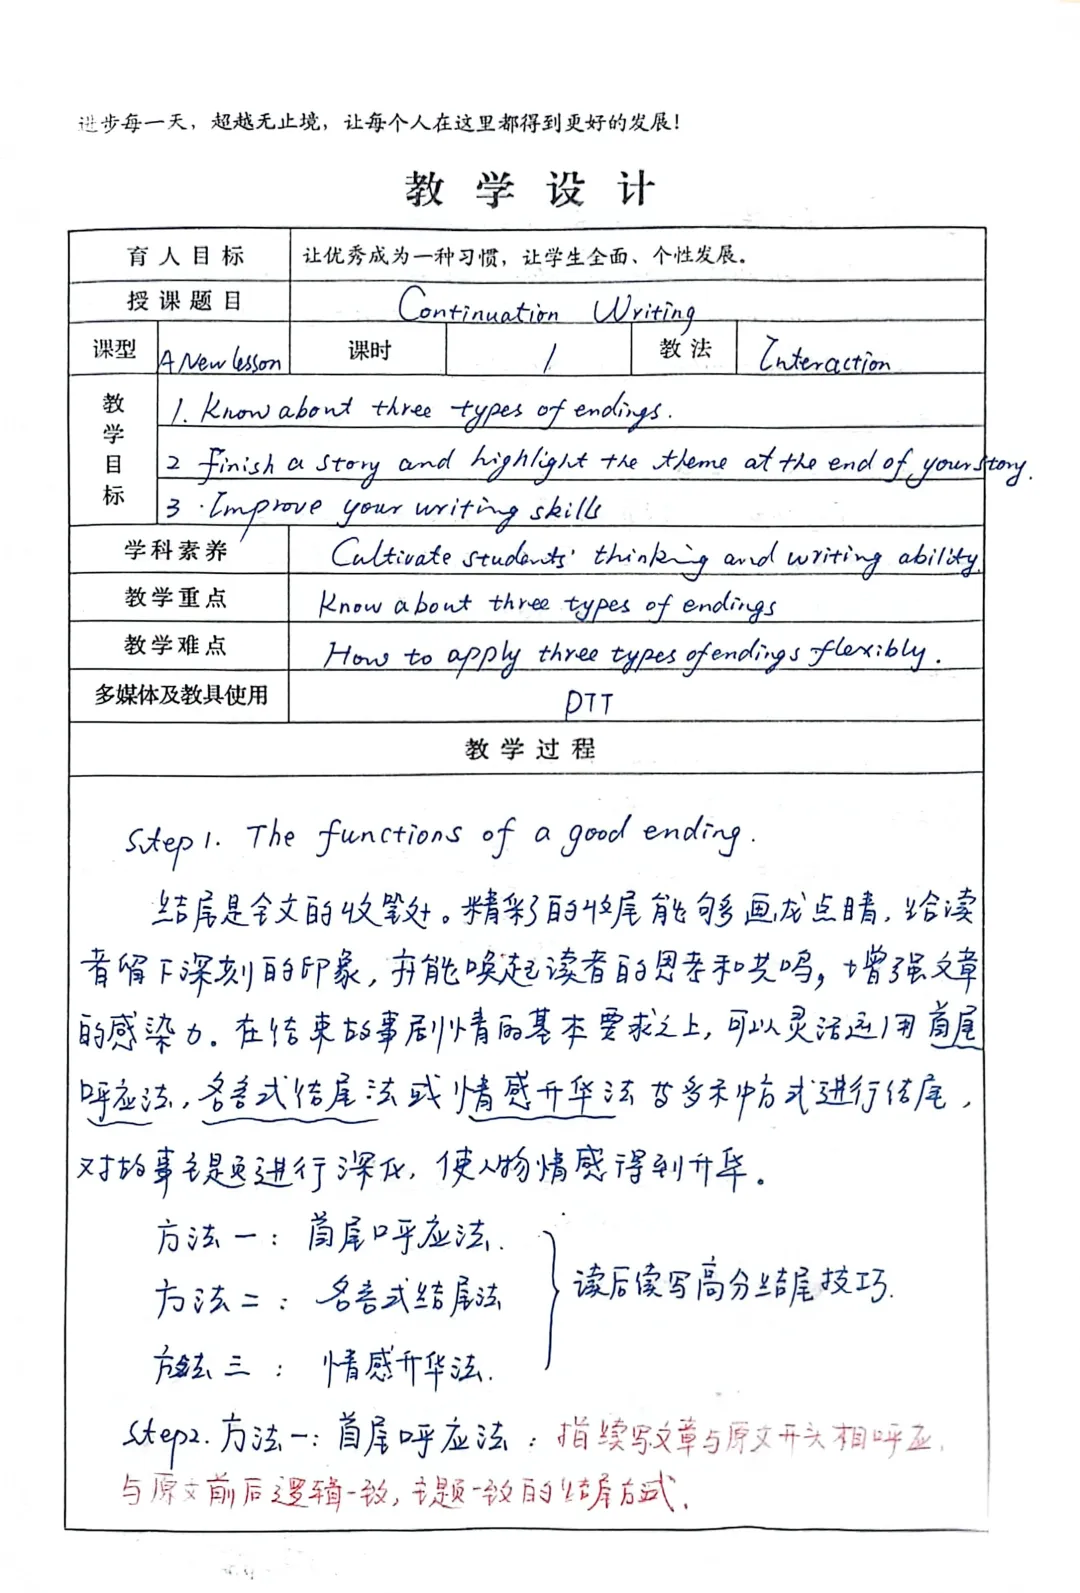 进步每一天，超越无止境，让每个人在这里都得到更好的发展！
教学设计
育人目标 让优秀成为一种习惯，让学生全面、个性发展。
授课题目 Continuation Writing
课型 A New lesson 课时 1 教法 Interaction
教学目标
1. Know about three types of endings.
2 Finish a story and highlight the theme at the end of your story.
3. Improve your writing skills
学科素养 Cultivate students' thinking and writing ability.
教学重点 Know about three types of endings
教学难点 How to apply three types of endings flexibly.
多媒体及教具使用 PTT
教学过程
Step1. The functions of a good ending.
结尾是全文的收笔处。精彩的收尾能够画龙点睛，给读
者留下深刻的印象，并能唤起读者的思考和共鸣，增强文章
的感染力。在结束故事剧情的基本要求之上，可以灵活运用首尾
呼应法，名言式结尾法或情感升华法等多种方式进行结尾，
对故事主题进行深化，使人物情感得到升华。
方法一：首尾呼应法.
方法二：名言式结尾法
方法三：情感升华法.
读后续写高分结尾技巧.
Step2. 方法一：首尾呼应法：指续写文章与原文开头相呼应，
与原文前后逻辑一致，主题一致的结尾方式.